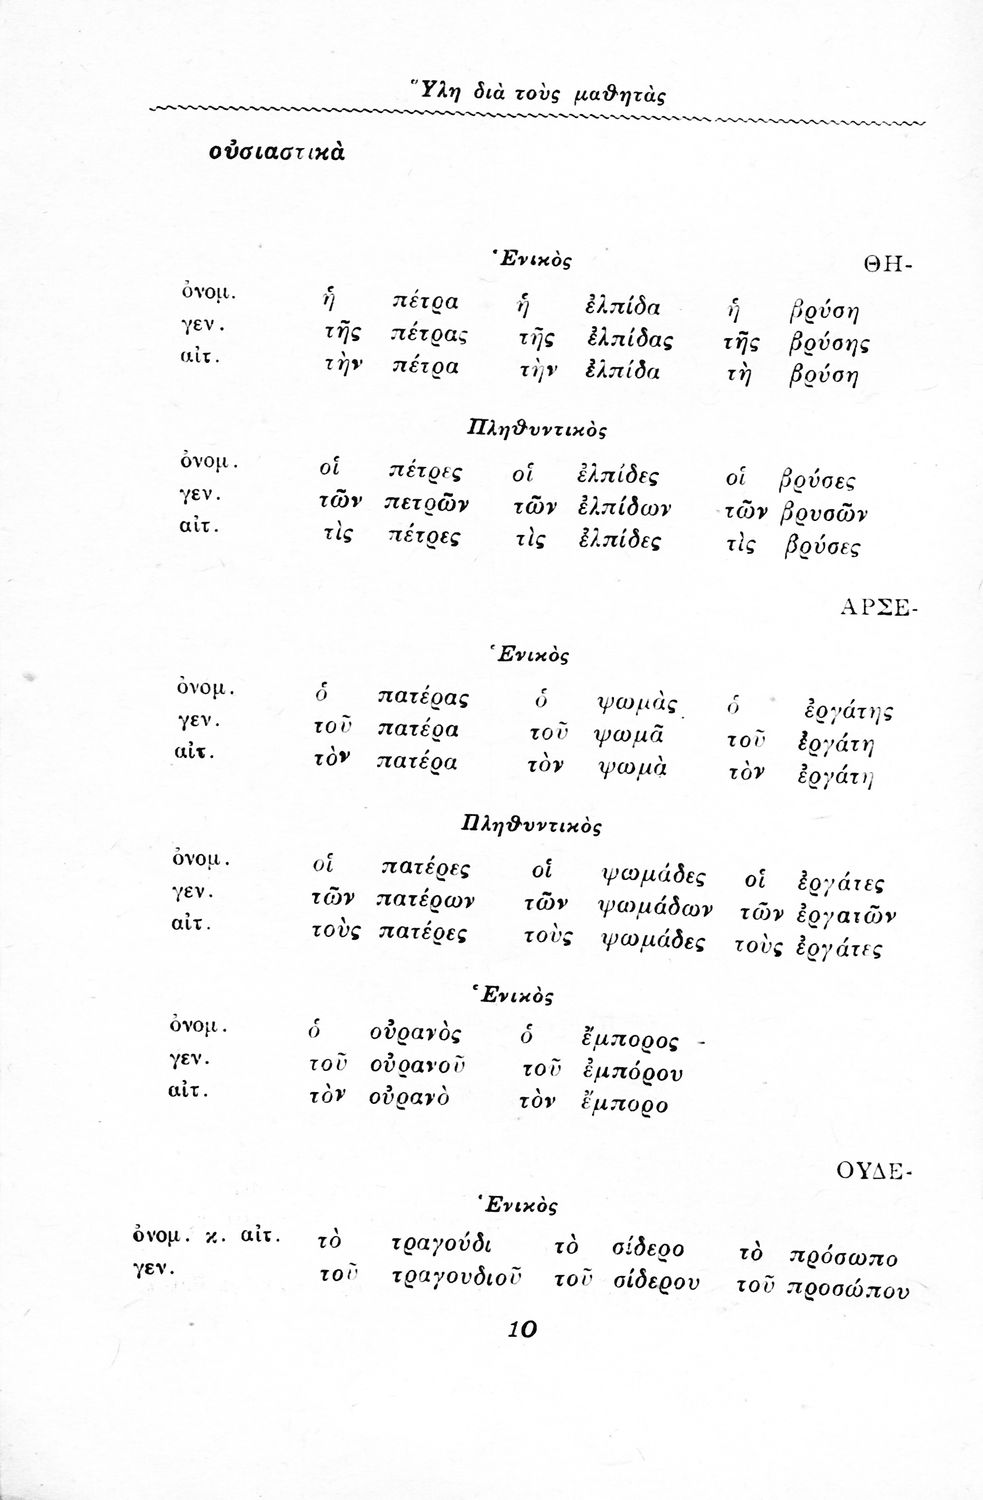 Ὕλη διὰ τοὺς μαθητὰς
οὐσιαστικὰ
Ἑνικὸς ΘΗ-
ὀνομ. ἡ πέτρα ἡ ἐλπίδα ἡ βρύση
γεν. τῆς πέτρας τῆς ἐλπίδας τῆς βρύσης
αἰτ. τὴν πέτρα τὴν ἐλπίδα τὴ βρύση
Πληθυντικὸς
ὀνομ. οἱ πέτρες οἱ ἐλπίδες οἱ βρύσες
γεν. τῶν πετρῶν τῶν ἐλπίδων τῶν βρυσῶν
αἰτ. τὶς πέτρες τὶς ἐλπίδες τὶς βρύσες
ΑΡΣΕ-
Ἑνικὸς
ὀνομ. ὁ πατέρας ὁ ψωμὰς ὁ ἐργάτης
γεν. τοῦ πατέρα τοῦ ψωμᾶ τοῦ ἐργάτη
αἰτ. τὸν πατέρα τὸν ψωμὰ τὸν ἐργάτη
Πληθυντικὸς
ὀνομ. οἱ πατέρες οἱ ψωμάδες οἱ ἐργάτες
γεν. τῶν πατέρων τῶν ψωμάδων τῶν ἐργατῶν
αἰτ. τοὺς πατέρες τοὺς ψωμάδες τοὺς ἐργάτες
Ἑνικὸς
ὀνομ. ὁ οὐρανὸς ὁ ἔμπορος -
γεν. τοῦ οὐρανοῦ τοῦ ἐμπόρου
αἰτ. τὸν οὐρανὸ τὸν ἔμπορο
ΟΥΔΕ-
Ἑνικὸς
ὀνομ. κ. αἰτ. τὸ τραγούδι τὸ σίδερο τὸ πρόσωπο
γεν. τοῦ τραγουδιοῦ τοῦ σίδερου τοῦ προσώπου
10